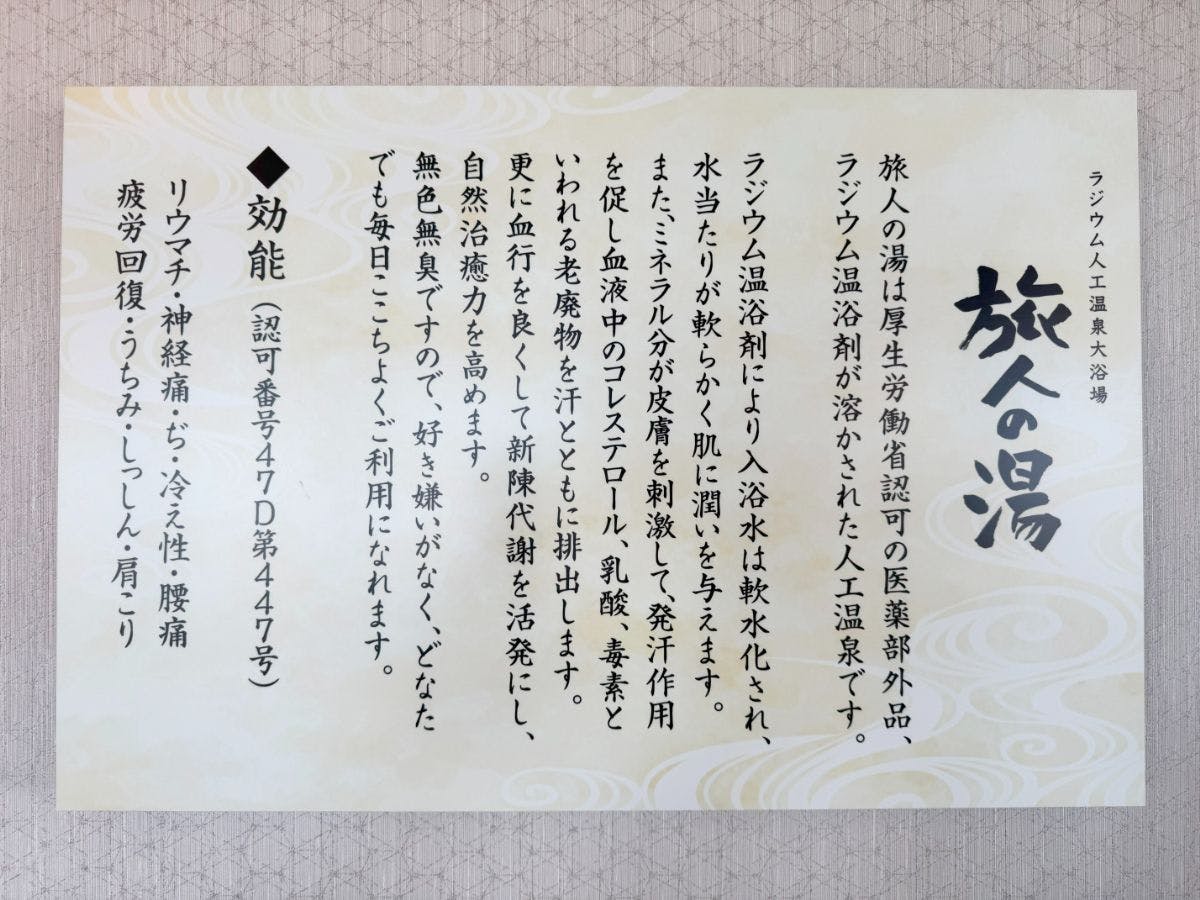 ラジウム人工温泉大浴場
旅人の湯
旅人の湯は厚生労働省認可の医薬部外品、
ラジウム温浴剤が溶かされた人工温泉です。
ラジウム温浴剤により入浴水は軟水化され、
水当たりが軟らかく肌に潤いを与えます。
また、ミネラル分が皮膚を刺激して、発汗作用
を促し血液中のコレステロール、乳酸、毒素と
いわれる老廃物を汗とともに排出します。
更に血行を良くして新陳代謝を活発にし、
自然治癒力を高めます。
無色無臭ですので、好き嫌いがなく、どなた
でも毎日ここちよくご利用になれます。
◆効能（認可番号47D第447号）
リウマチ・神経痛・ぢ・冷え性・腰痛
疲労回復・うちみ・しっしん・肩こり